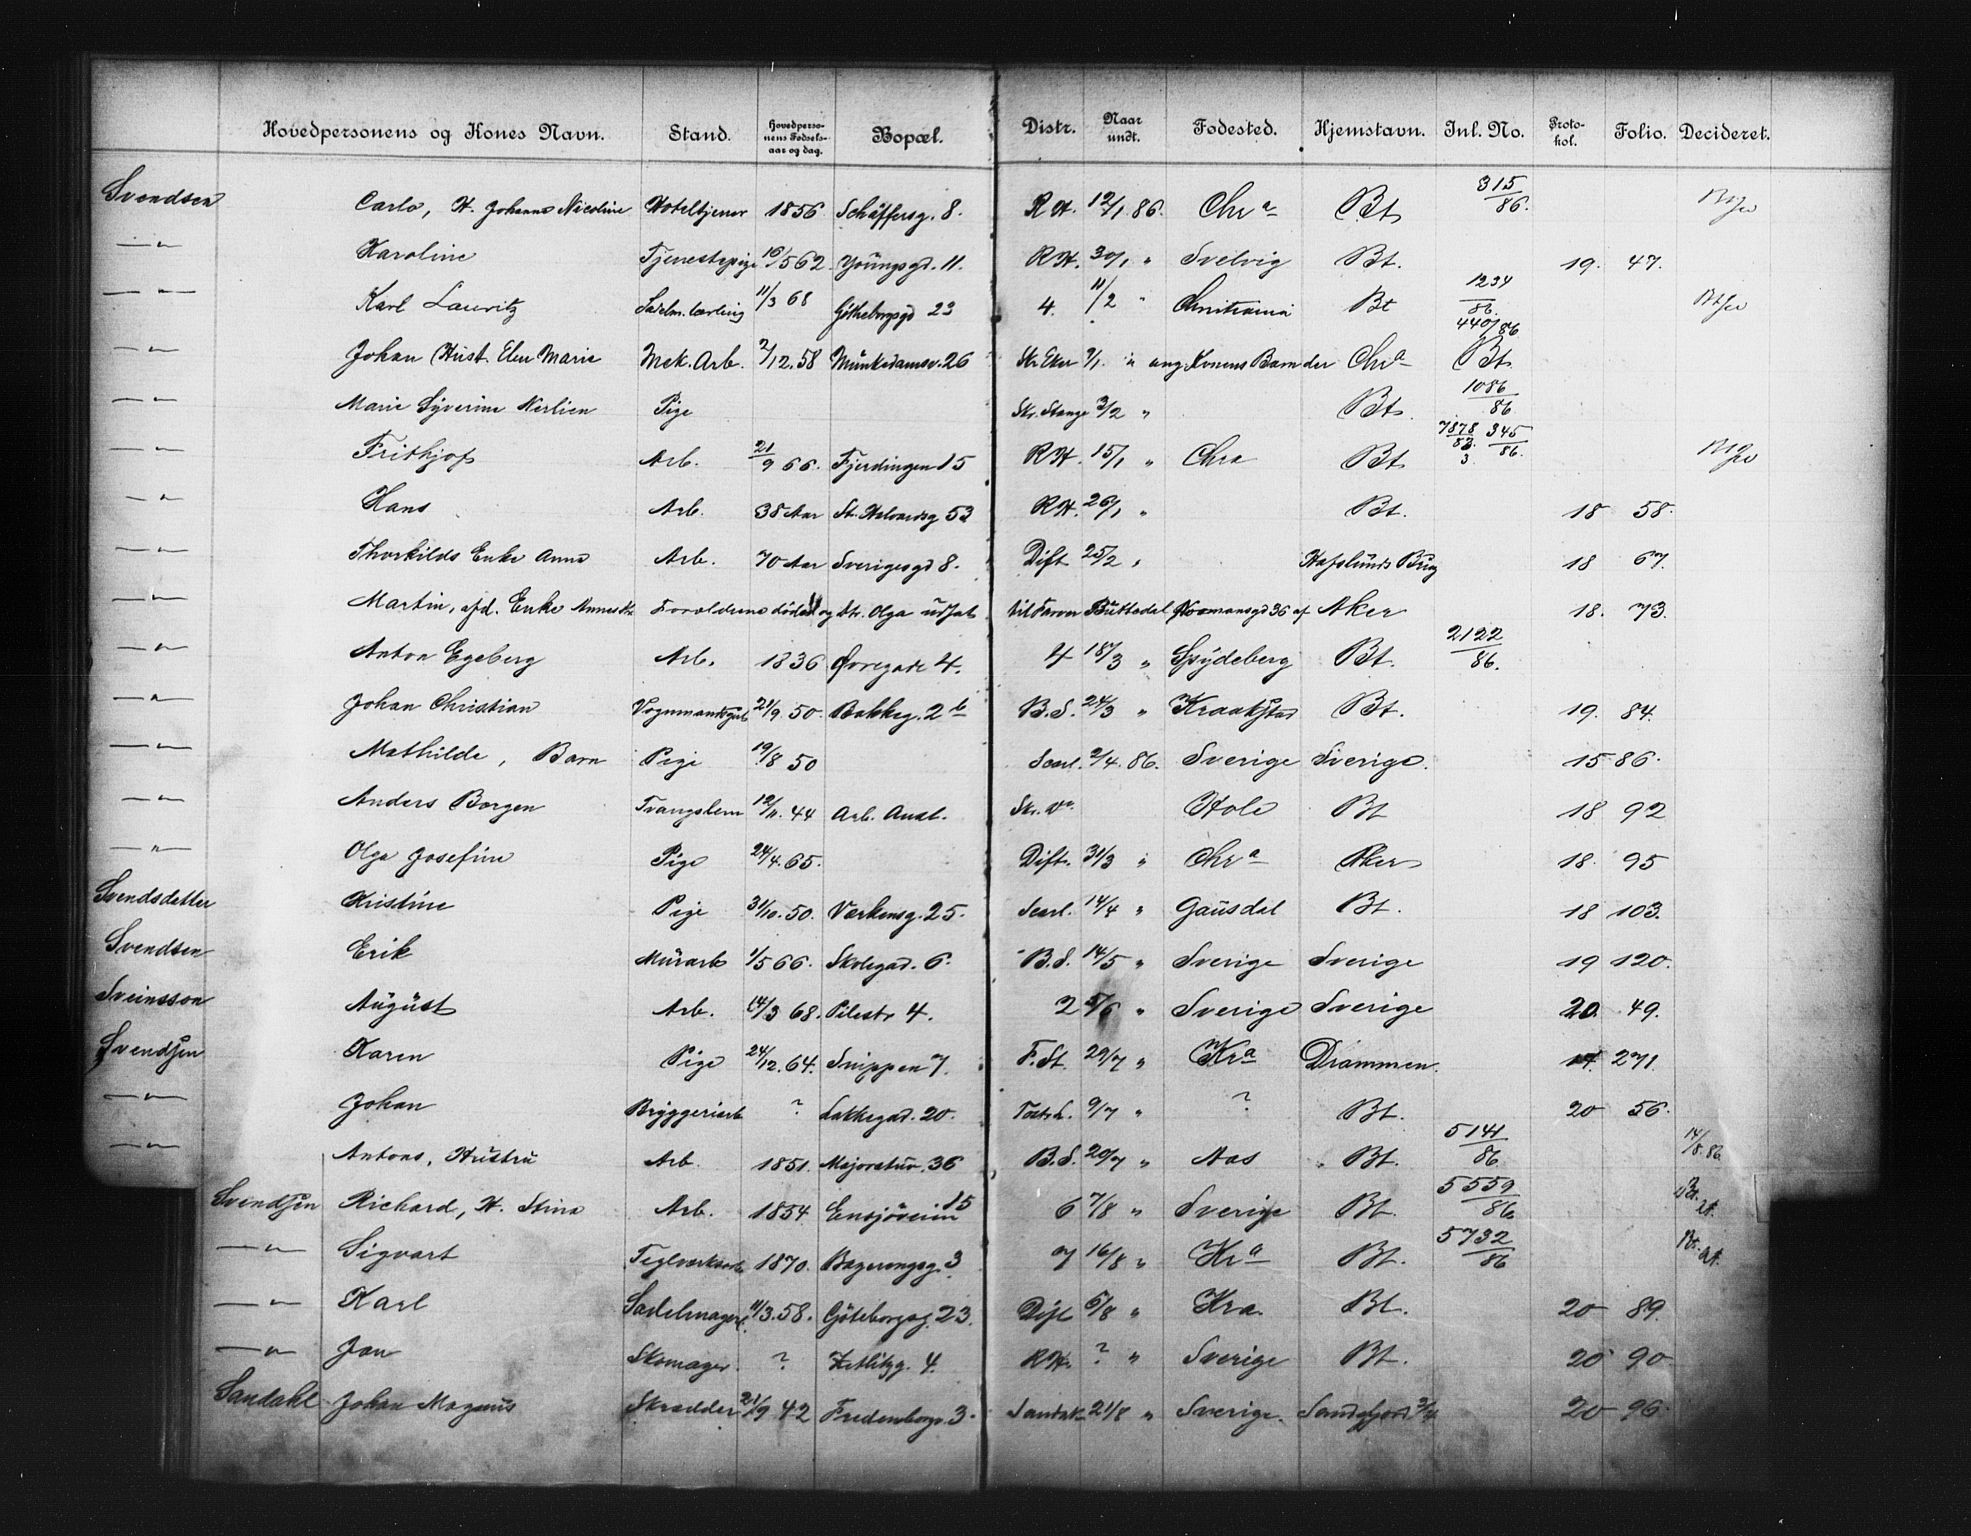 Hovedpersonens og Kones Navn. Stand. Hovedpersonens Fødselsaar og dag. Bopæl. Distr. Naar undt. Fødested. Hjemstavn. Inl. No. Protokol. Folio. Decideret.
Svendsen Carlo, H. Johanne Nicoline Hoteltjener 1856 Schäffersg. 8. R.H. 12/1 86. Chr a Bt 315/86.
—"— Karoline Tjenestepige 16/5 62. Youngsgd. 11. R.H. 30/1 " Svelvig Bt. 19. 47.
—"— Karl Lauritz Sadelm. lærling 11/3 68 Götheborgsgd 23 4. 11/2 " Christiania Bt 1234/86.
—"— Johan (Hust. Elen Marie Mek. Arb. 2/12. 58 Munkedamsv. 26 Skr. Eker 7/1. " ang. Konens Barn der Chr a Bt. 440/86
—"— Marie Syverine Nerlien Pige Skr. Stange 3/2 " Bt. 1086/86
—"— Frithjof Arb. 21/9 66. Fjerdingen 15 R.H. 15/1 " Chra Bt 7878/83. 345/86.
—"— Hans Arb. 38 Aar St. Halvardsg 53 R.H. 26/1 " Bt. 18 58.
—"— Thorkilds Enke Anna Arb. 70 Aar Sverigesgd 8. Dift 25/2 " Hafslunds Brug 18 67.
—"— Martin, afd. Enke Forældrene døde og Olga udsat til Farver Buttedal Normansgd 36 af Aker 18. 73.
—"— Anton Egeberg Arb. 1836 Øvregade 4. 4 18/3 " Spydeberg Bt. 2122/86.
—"— Johan Christian Vognmandsgut 21/9 50. Bakkeg. 2 b B.S. 24/3 " Kraakstad Bt. 19. 84.
—"— Mathilde, Barn Pige 19/8 50 Scarl. 2/4. 86. Sverige Sverige. 15 86.
—"— Anders Borgen Tvangslem 12/11. 44 Arb. Anst. Hole Bt 18 92
—"— Olga Josefine Pige 24/4. 65. Dift. 31/3 " Chr a Aker 18. 95
Svendsdatter Kristine Pige 31/10. 50. Værkensg. 25. Scarl. 14/4 " Gausdal Bt. 18 103.
Svendsen Erik Murarb 1/5 66. Skolegad. 6. B.S. 14/5 " Sverige Sverige 19 120.
Sveinsson August Arb. 14/3 68. Pilestr 4. 2 5/6 " Sverige Sverige 20. 49.
Svendsen Karen Pige 24/12. 64. Snippen 7. F. St. 29/7 " Kra Drammen. 17. 271.
—"— Johan Bryggeriarb ? Lakkegad. 20. 9/7 " ? Bt. 20 56.
—"— Antons, Hustru Arb 1851. Majorstuv. 36 B.S. 20/7 " Aas Bt. 5141/86 14/8. 86.
Svendsen Richard, H. Stina Arb. 1854 Ensjöveien 15 6 7/8 " Sverige Bt. 5559/86 Bt. at.
—"— Sigvart Teglverksarb 1870. 3 7 16/8 " Kr a Bt. 5732/86 Bt. at.
—"— Karl Sadelmagerl. 11/3. 58. Göteborgsg. 23. Dift 5/8 " Kra. Bt. 20 89.
—"— Jon Skomager. ? Hetlitzg. 4. R.H. ? " Sverige Bt. 20 90.
Sandahl Johan Magnus Skrædder 21/9 42 Fredensborgv. 3. 21/8 " Sverige. Sandefjord 3/4 20 96.